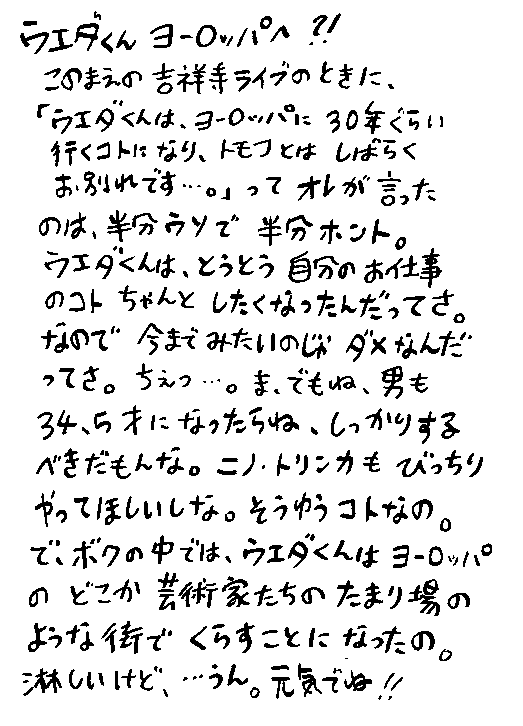 ウエダくん ヨーロッパへ ?!
このまえの 吉祥寺ライブのときに、
「ウエダくんは、ヨーロッパに 30年ぐらい
行くコトになり、トモフとは しばらく
お別れです…。」って オレが 言った
のは、半分ウソで 半分ホント。
ウエダくんは、とうとう 自分のお仕事
のコト ちゃんと したくなったんだってさ。
なので 今までみたいのじゃ ダメなんだ
ってさ。ちぇっ…。ま、でもね、男も
34、5才になったらね、しっかりする
べきだもんな。ニノ・トリンカも びっちり
やってほしいしな。そうゆうコトなの。
で、ボクの中では、ウエダくんは ヨーロッパ
の どこか 芸術家たちの たまり場の
ような街で くらすことに なったの。
淋しいけど、…うん。元気でね!!